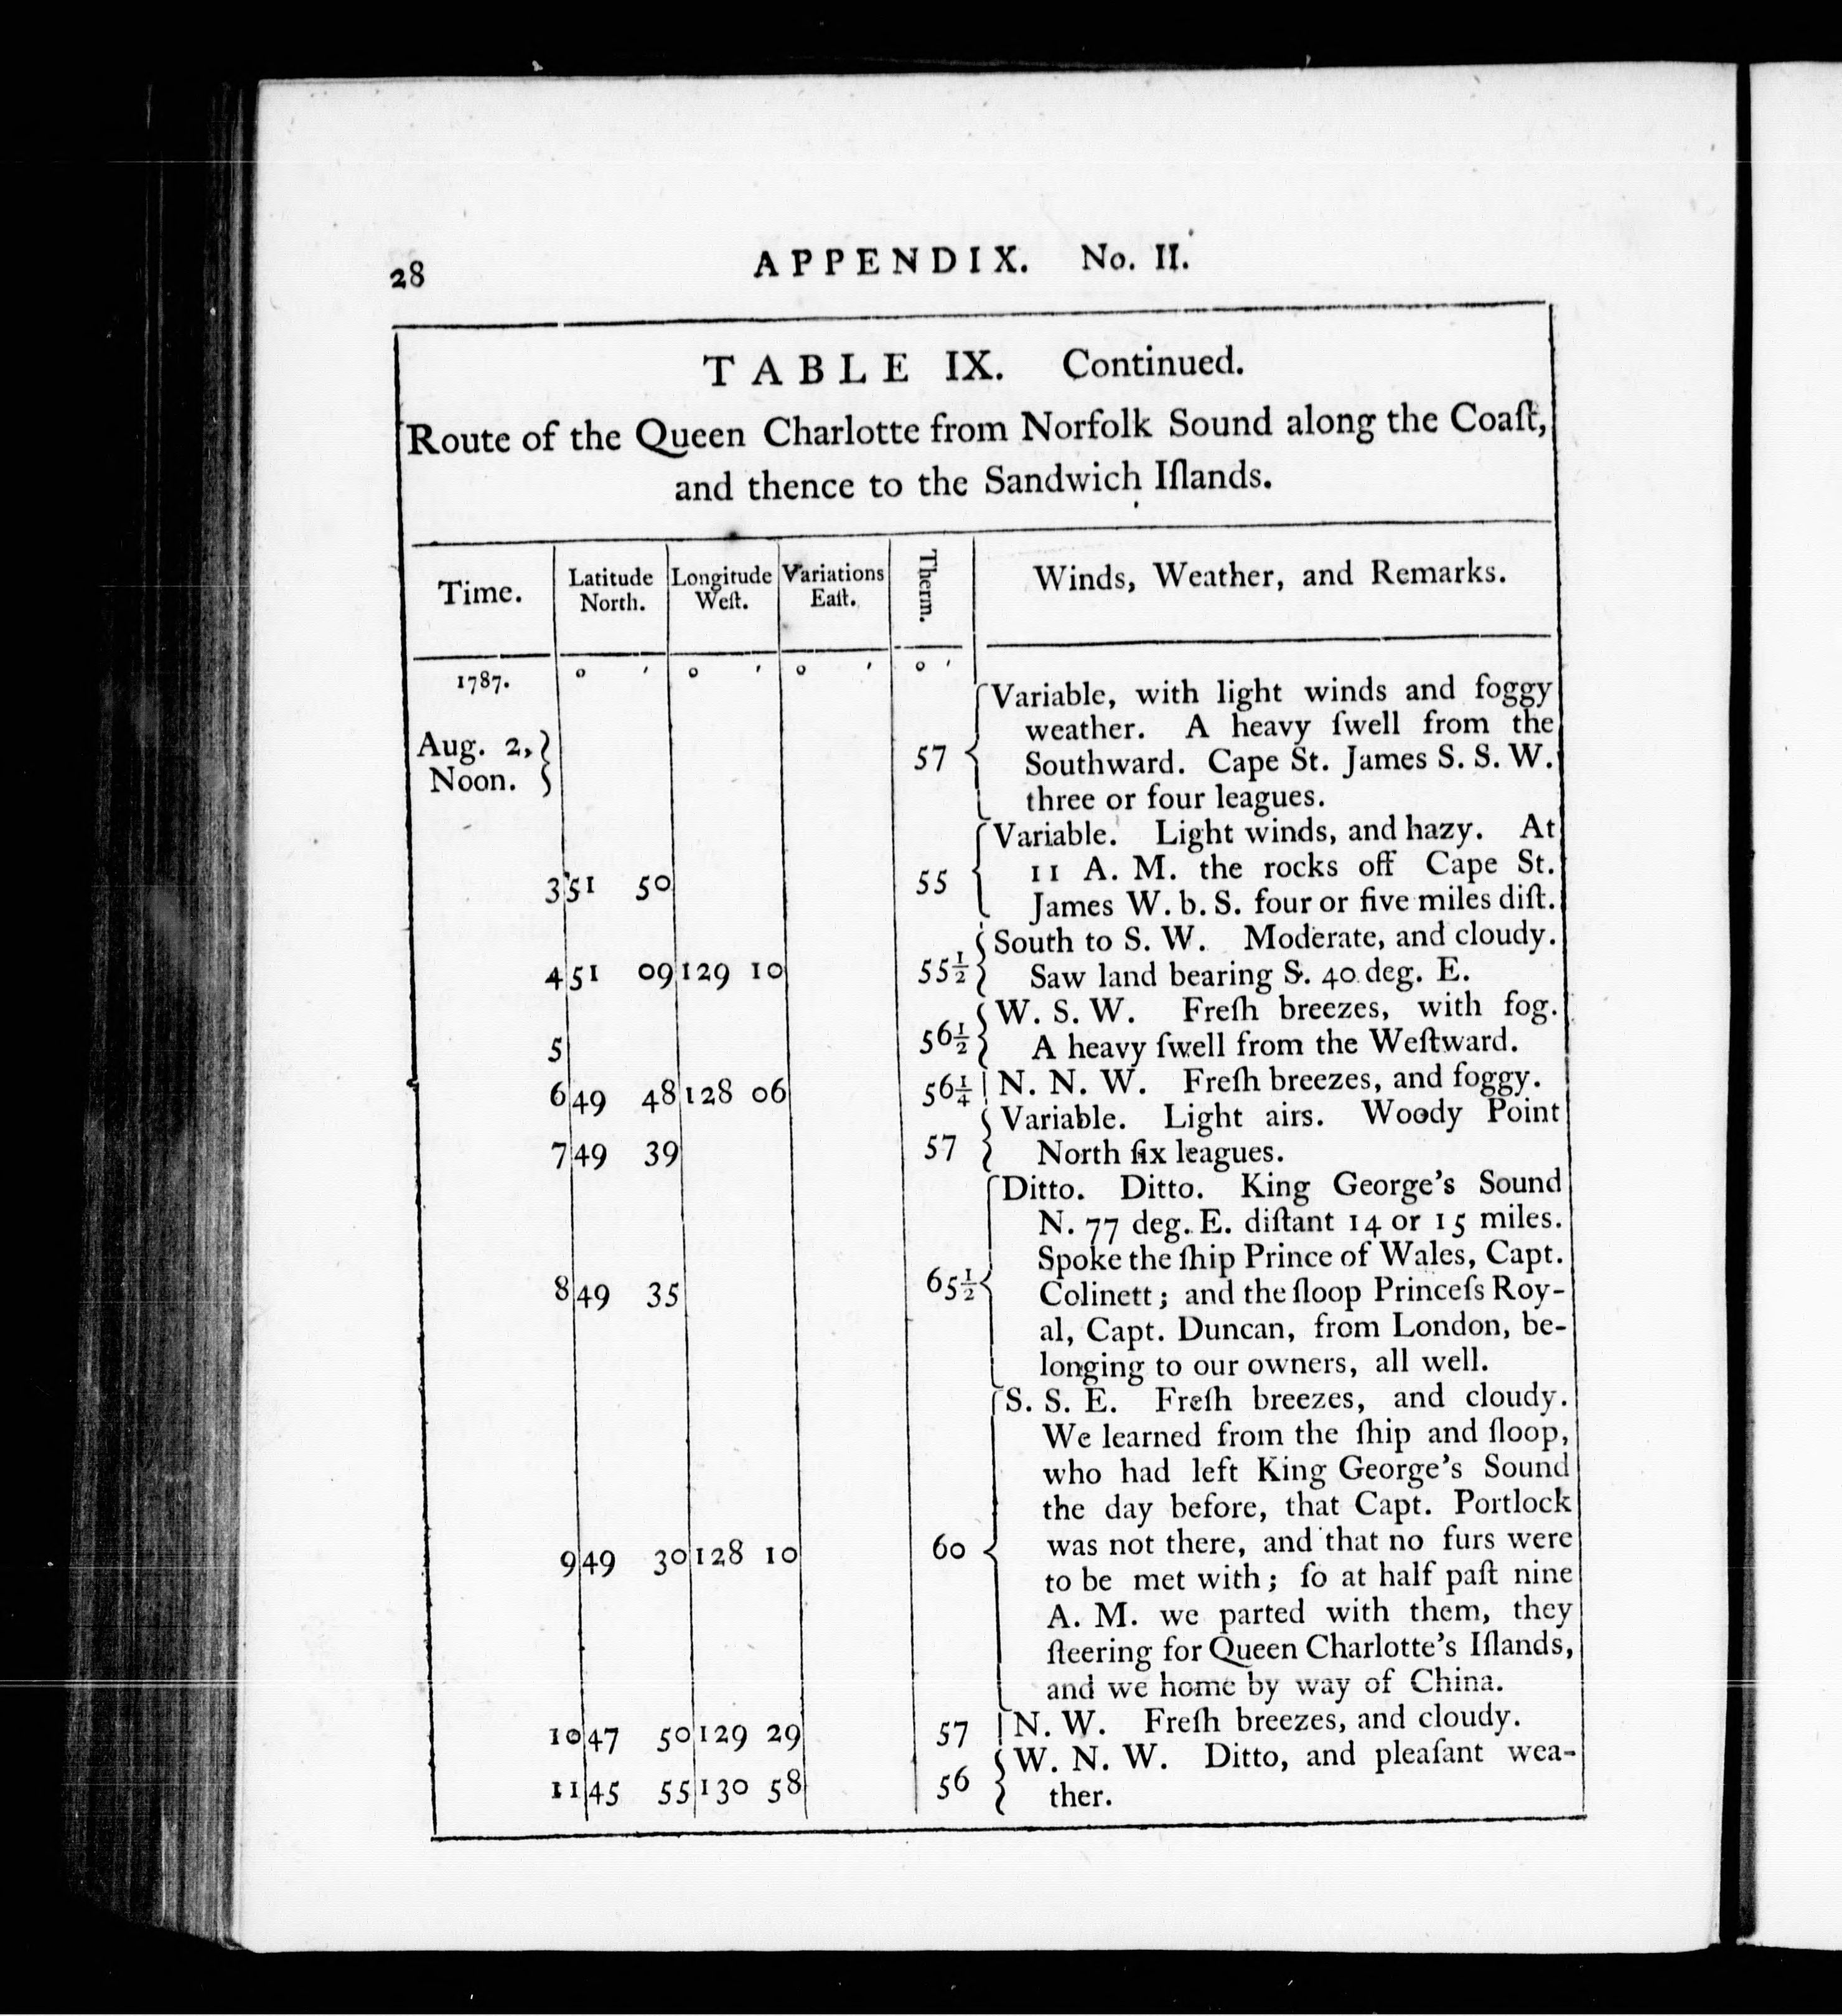 28
APPENDIX. No. II.
TABLE IX. Continued.
Route of the Queen Charlotte from Norfolk Sound along the Coaſt,
and thence to the Sandwich Iſlands.
Time. Latitude North. Longitude Weſt. Variations Eaſt. Therm. Winds, Weather, and Remarks.
1787. o ′ o ′ o ′ o ′
Variable, with light winds and foggy
weather. A heavy ſwell from the
Aug. 2, Noon. 57 Southward. Cape St. James S. S. W.
three or four leagues.
Variable. Light winds, and hazy. At
3 51 50 55 11 A. M. the rocks off Cape St.
James W. b. S. four or five miles diſt.
South to S. W. Moderate, and cloudy.
4 51 09 129 10 55½ Saw land bearing S. 40 deg. E.
W. S. W. Freſh breezes, with fog.
5 56½ A heavy ſwell from the Weſtward.
6 49 48 128 06 56¼ N. N. W. Freſh breezes, and foggy.
Variable. Light airs. Woody Point
7 49 39 57 North ſix leagues.
Ditto. Ditto. King George's Sound
N. 77 deg. E. diſtant 14 or 15 miles.
Spoke the ſhip Prince of Wales, Capt.
8 49 35 65½ Colinett; and the ſloop Princeſs Roy-
al, Capt. Duncan, from London, be-
longing to our owners, all well.
S. S. E. Freſh breezes, and cloudy.
We learned from the ſhip and ſloop,
who had left King George's Sound
the day before, that Capt. Portlock
9 49 30 128 10 60 was not there, and that no furs were
to be met with; ſo at half paſt nine
A. M. we parted with them, they
ſteering for Queen Charlotte's Iſlands,
and we home by way of China.
10 47 50 129 29 57 N. W. Freſh breezes, and cloudy.
11 45 55 130 58 56 W. N. W. Ditto, and pleaſant wea-
ther.